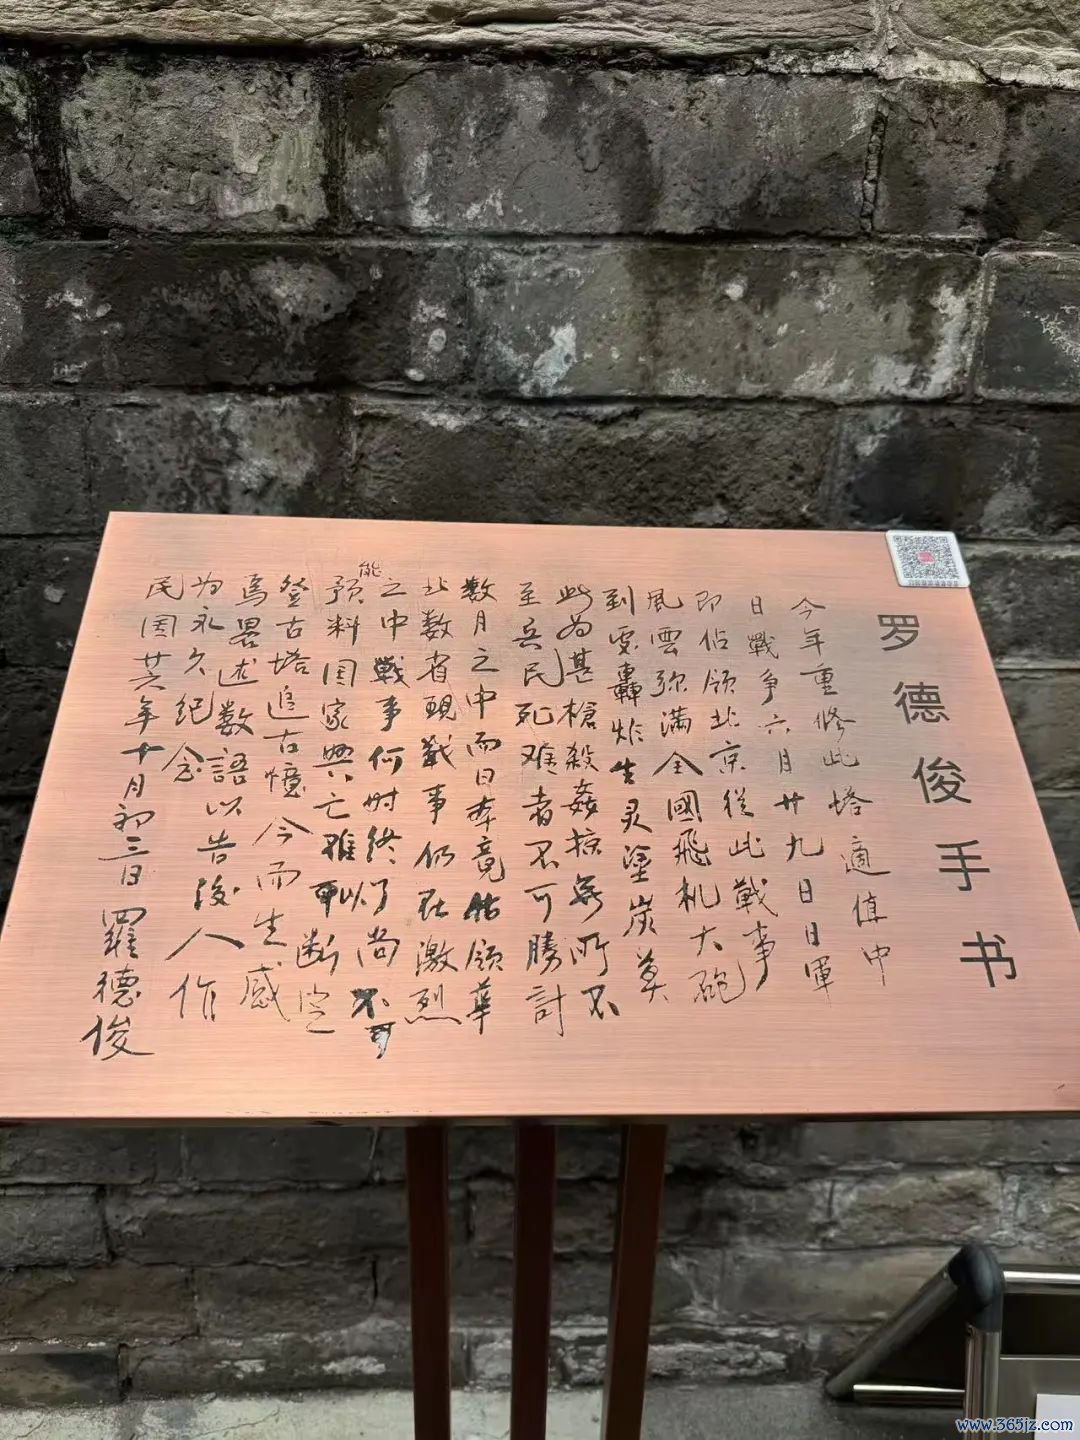 罗德俊手书
今年重修此塔適值中
日戰争六月廿九日日軍
即佔領北京從此戰事
風雲弥满全國飛机大砲
到处轟炸生灵塗炭莫
此为甚槍殺姦掠無所不
至兵民死难者不可勝計
数月之中而日本竟佔領華
北数省現戰事仍在激烈
之中戰事何时終了尚不可
能预料国家興亡难以断定
登古塔追古憶今而生感
焉畧述数語以告後人作
为永久纪念
民国廿六年十月初三日羅德俊
www.365jz.com